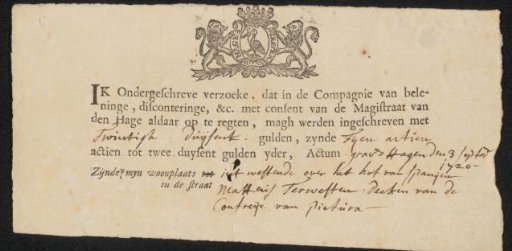 IK Ondergeschreve verzoeke, dat in de Compagnie van bele-
ninge, disconteringe, &c. met consent van de Magistraat van
den Hage aldaar op te regten, magh werden ingeschreven met
Twintigh Duysent gulden, zynde Tyen actien
actien tot twee duysent gulden yder, Actum gravs Hagen den 3
1720
Zijnde myn woonplaats tot int westende over het hof van spangien
in de straat Mattheis Terwesten Deeken van de
Contreije van pictura